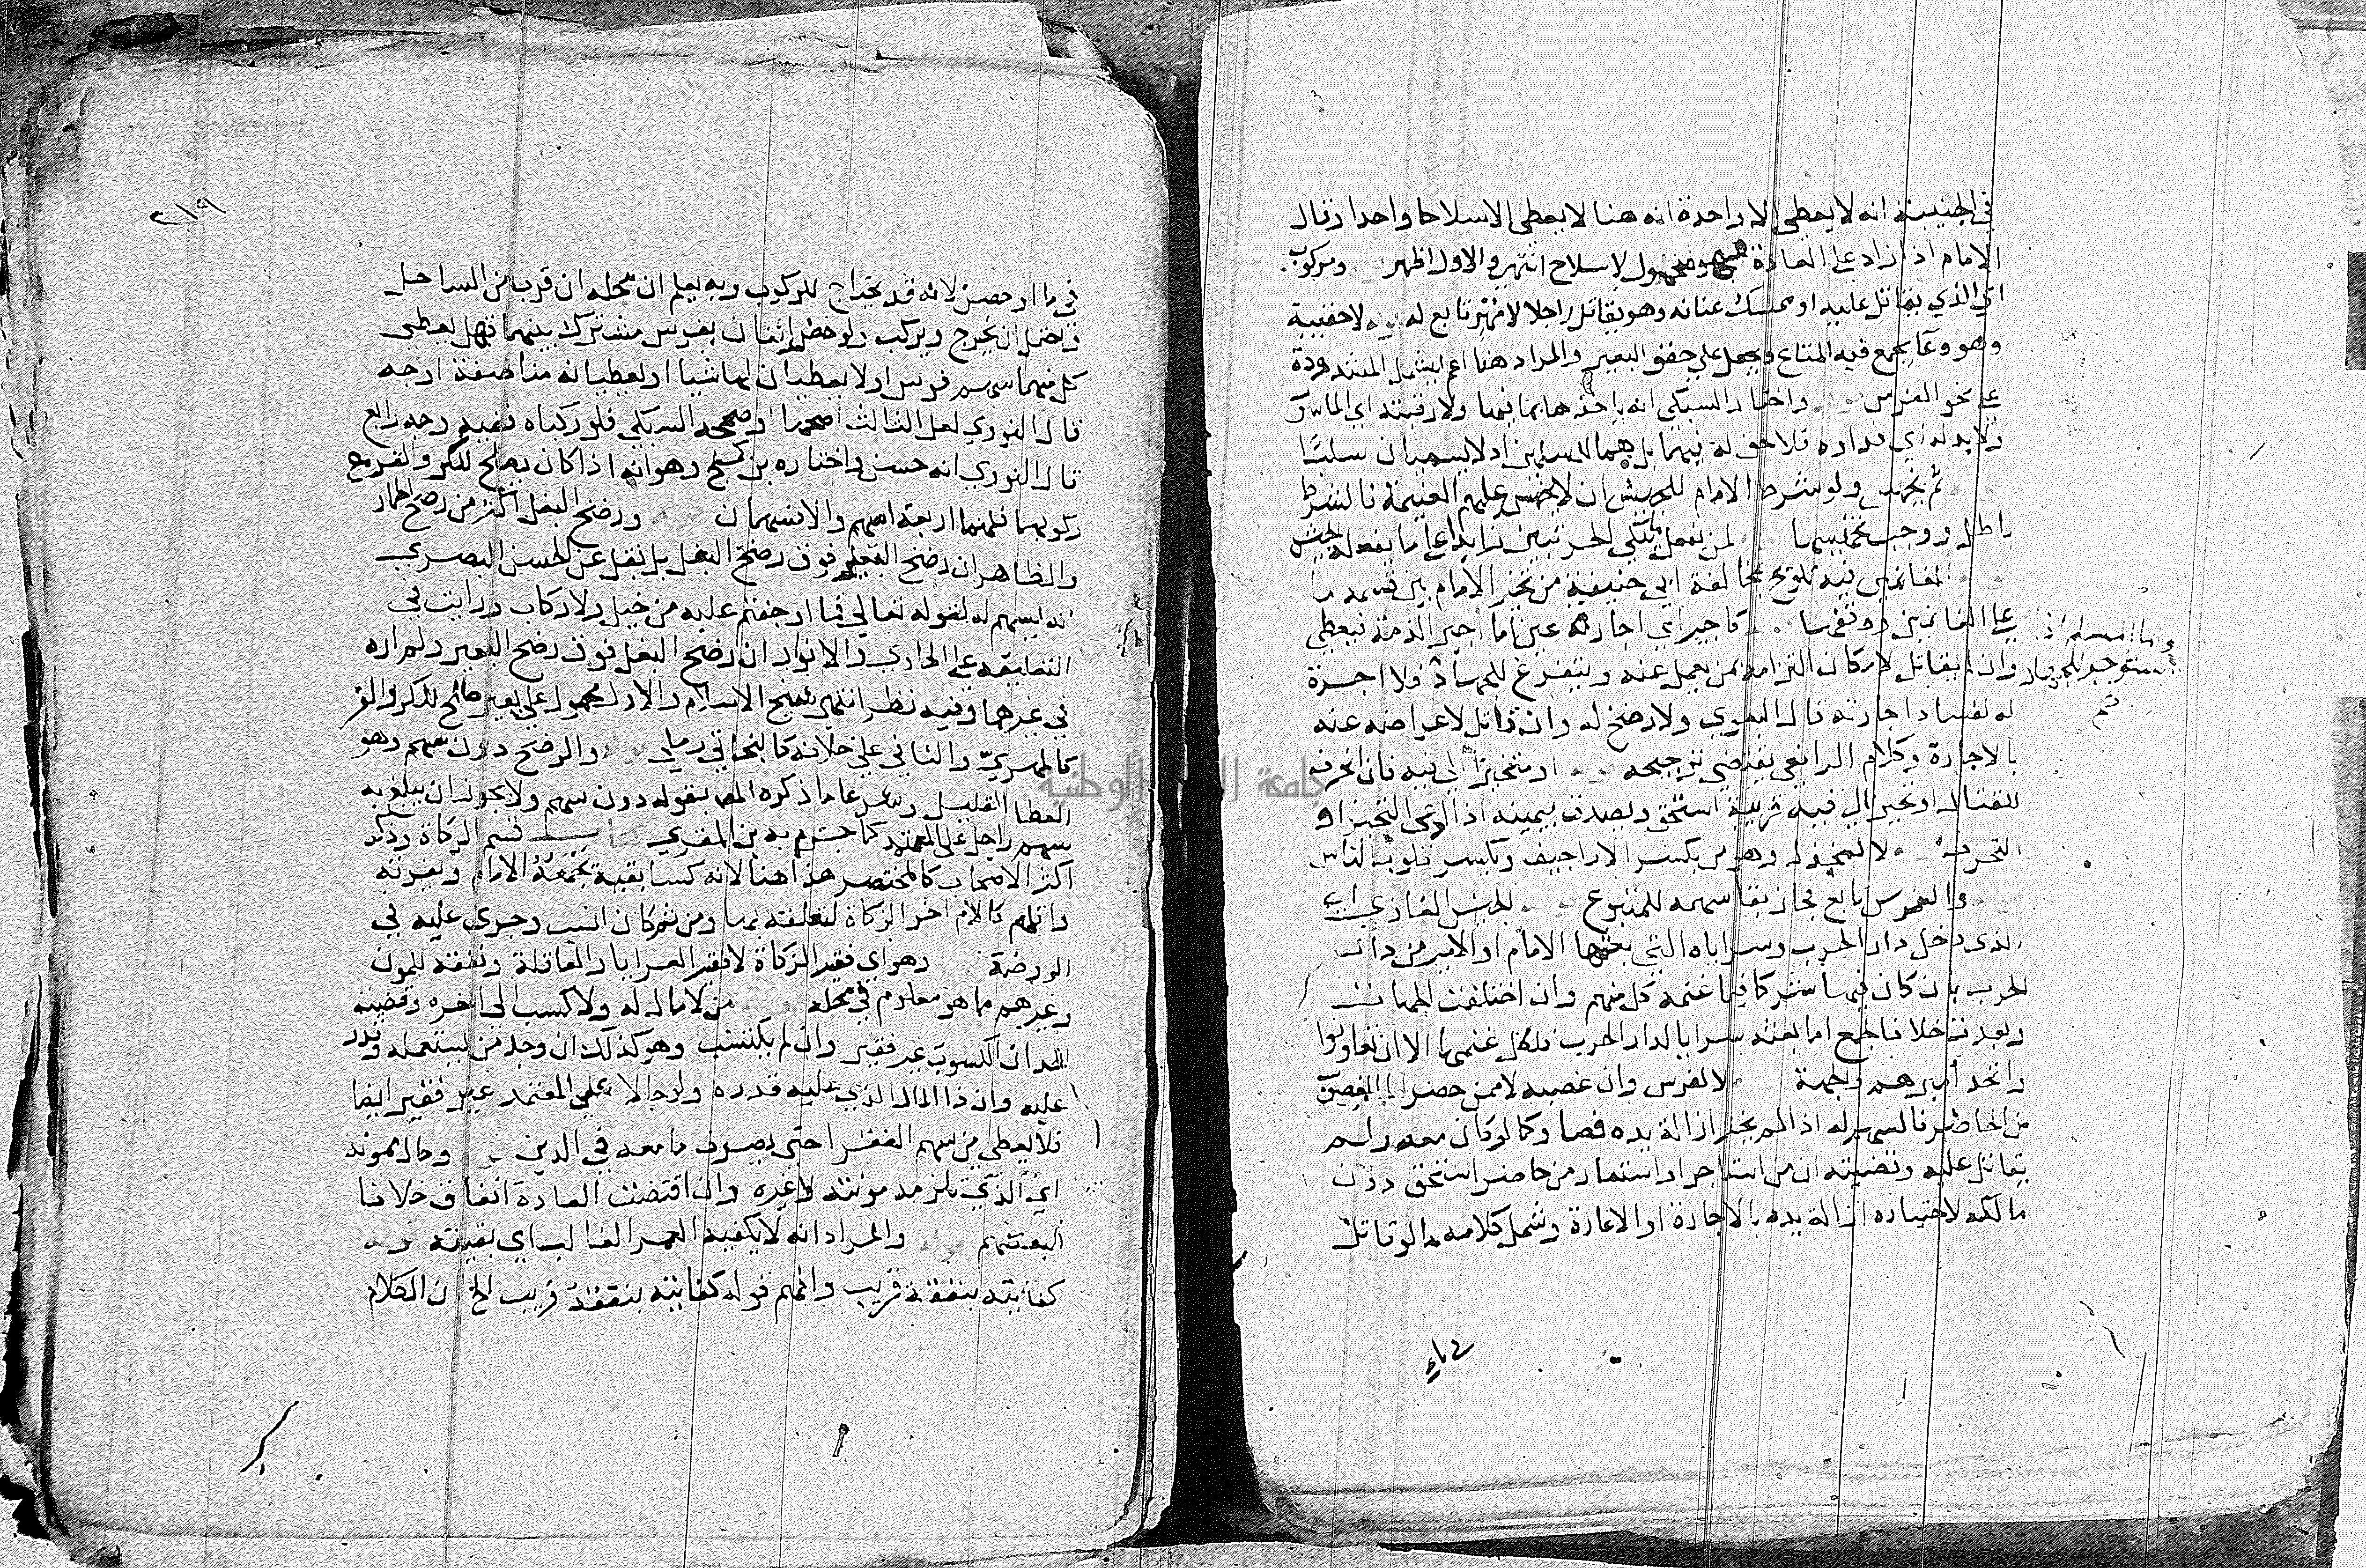 في الجنيبة انه لا يعطى الا واحدة انه هنا لا يعطى الا سلاحا واحدا وقال
الامام اذا زاد على العادة فهو محمول لا سلاح انتهى والاول اظهر ومركوب
اي الذي يقاتل عليه او ممسك عنانه وهو يقاتل راجلا لا مهر تابع له لا حقيبة
وهو وعا يجمع فيه المتاع ويجعل على حقو البعير والمراد هنا اعم ليشمل المشدودة
على نحو الفرس واختار السبكي انه ياخذها بما فيها ولا رقبته اي الماسور
ولا بدله اي فداره فلا حق له فيهما بل هما للمسلمين او لا يسميان سلبا
ثم يخمس ولو شرط الامام للجيش ان لا يخمس عليهم الغنيمة فالشرط
باطل ووجب تخميسها لمن يفعل زايدا على ما يفعله الجيش
الغانمين فيه تلويح بمخالفة ابي حنيفة من تخير الامام بين قسمه ما
على الغانمين ووقفها كاجير اي اجارة عين اما اجير الذمة فيعطى
وان لم يقاتل لامكان التزامه بمن يعمل عنه ويتفرغ للجهاد فلا اجرة
له لفساد اجارته قال البغوي ولا رضخ له وان قاتل لاعراضه عنه
بالاجارة وكلام الرافعي يقتضي ترجيحه او متحيزا الى فيه فان انحرف
للقتال او تحيز الى فية قريبة استحق ويصدق بيمينه اذا ادعى التحيز او
التحرف لا لمخذل وهو من يكسر الاراجيف ويكسر قلوب الناس
والفرس تابع فجاز بقا سهمه للمتبوع للجيش الغازي اي
الذي دخل دار الحرب وسراياه التي بعثها الامام او الامير من دار
الحرب بان كان فيها شركا فيما غنمه كل منهم وان اختلفت الجهات
وبعدت خلافا لجمع اما بعثه سرايا لدار الحرب فلكل غنمها الا ان تعاونوا
واتحد اميرهم والجهة لا لفرس وان غصبه لا ممن حضر اما المغصوب
من الحاضر فالسهم له اذا لم يختر ازالة يده فصا وكما لو كان معه ولم
يقاتل عليه وقضيته ان من استاجر او استعار من حاضر استحق دون
مالكه لاختياره ازالة يده بالاجارة او الاعارة وشمل كلامه ما لو قاتل
واما المسلم اذا
استوجر للجهاد
٢١٩
في ما او حصن لانه قد يحتاج للركوب وبه يعلم ان محله ان قرب من الساحل
واحتمل ان يخرج ويركب ولو حضر اثنان بفرس مشترك بينهما فهل يعطى
كل منهما سهم فرس او لا يعطيان لها شيا او يعطيانه مناصفة اوجه
قال النووي لعل الثالث اصحها وصححه السبكي فلو ركباه ففيه وجه رابع
قال النووي انه حسن واختاره بن كج وهو انه اذا كان يصلح للكر والفر مع
ركوبهما فلهما اربعة اسهم والا فسهمان ورضخ البغل اكثر من رضخ الحمار
والظاهر ان رضخ الفيل فوق رضخ البغل بل نقل عن الحسن البصري
انه يسهم له لقوله تعالى فما اوجفتم عليه من خيل ولا ركاب ورايت في
التعليقة على الحاوي والانوار ان رضخ البغل فوق رضخ البعير ولم اره
في غيرهما وفيه نظر انتهى شيخ الاسلام والاول محمول على بعير صالح للكر والفر
كالمهري والثاني على خلافه كالبخاتي رملي والرضخ دون سهم وهو
العطا القليل وشرعا ما ذكره المص بقوله دون سهم ولا يجوز ان يبلغ به
سهم راجل على المعتمد كما جزم به بن المقري كتاب قسم الزكاة وذكر
اكثر الاصحاب كالمختصر هذا هنا لانه كسابقية يجمعه الامام ويفرقه
وانهم كالام اخر الزكاة لتعلقه بها ومن ثم كان انسب وجرى عليه في
الروضة وهو اي فقير الزكاة لا فقير العرايا والعاقلة ونفقه للممون
وغيرهم مما هو معلوم في محله من لا مال له ولا كسب الى اخره وقضيته
الحد ان الكسوب غير فقير وان لم يكتسب وهو كذلك ان وجد من يستعمله وقدر
عليه وان ذا المال الذي عليه قدره ولو حالا على المعتمد غير فقير ايضا
فلا يعطى من سهم الفقرا حتى يصرف ما معه في الدين وحال ممونه
اي الذي تلزمه مونته لا غيره وان اقتضت العادة انفاق خلافا
لبعضهم والمراد انه لا يكفيه العمر الغالب اي بقيته
كفايته بنفقة قريب وانهم قوله كفايته بنفقة قريب الخ ان الكلام